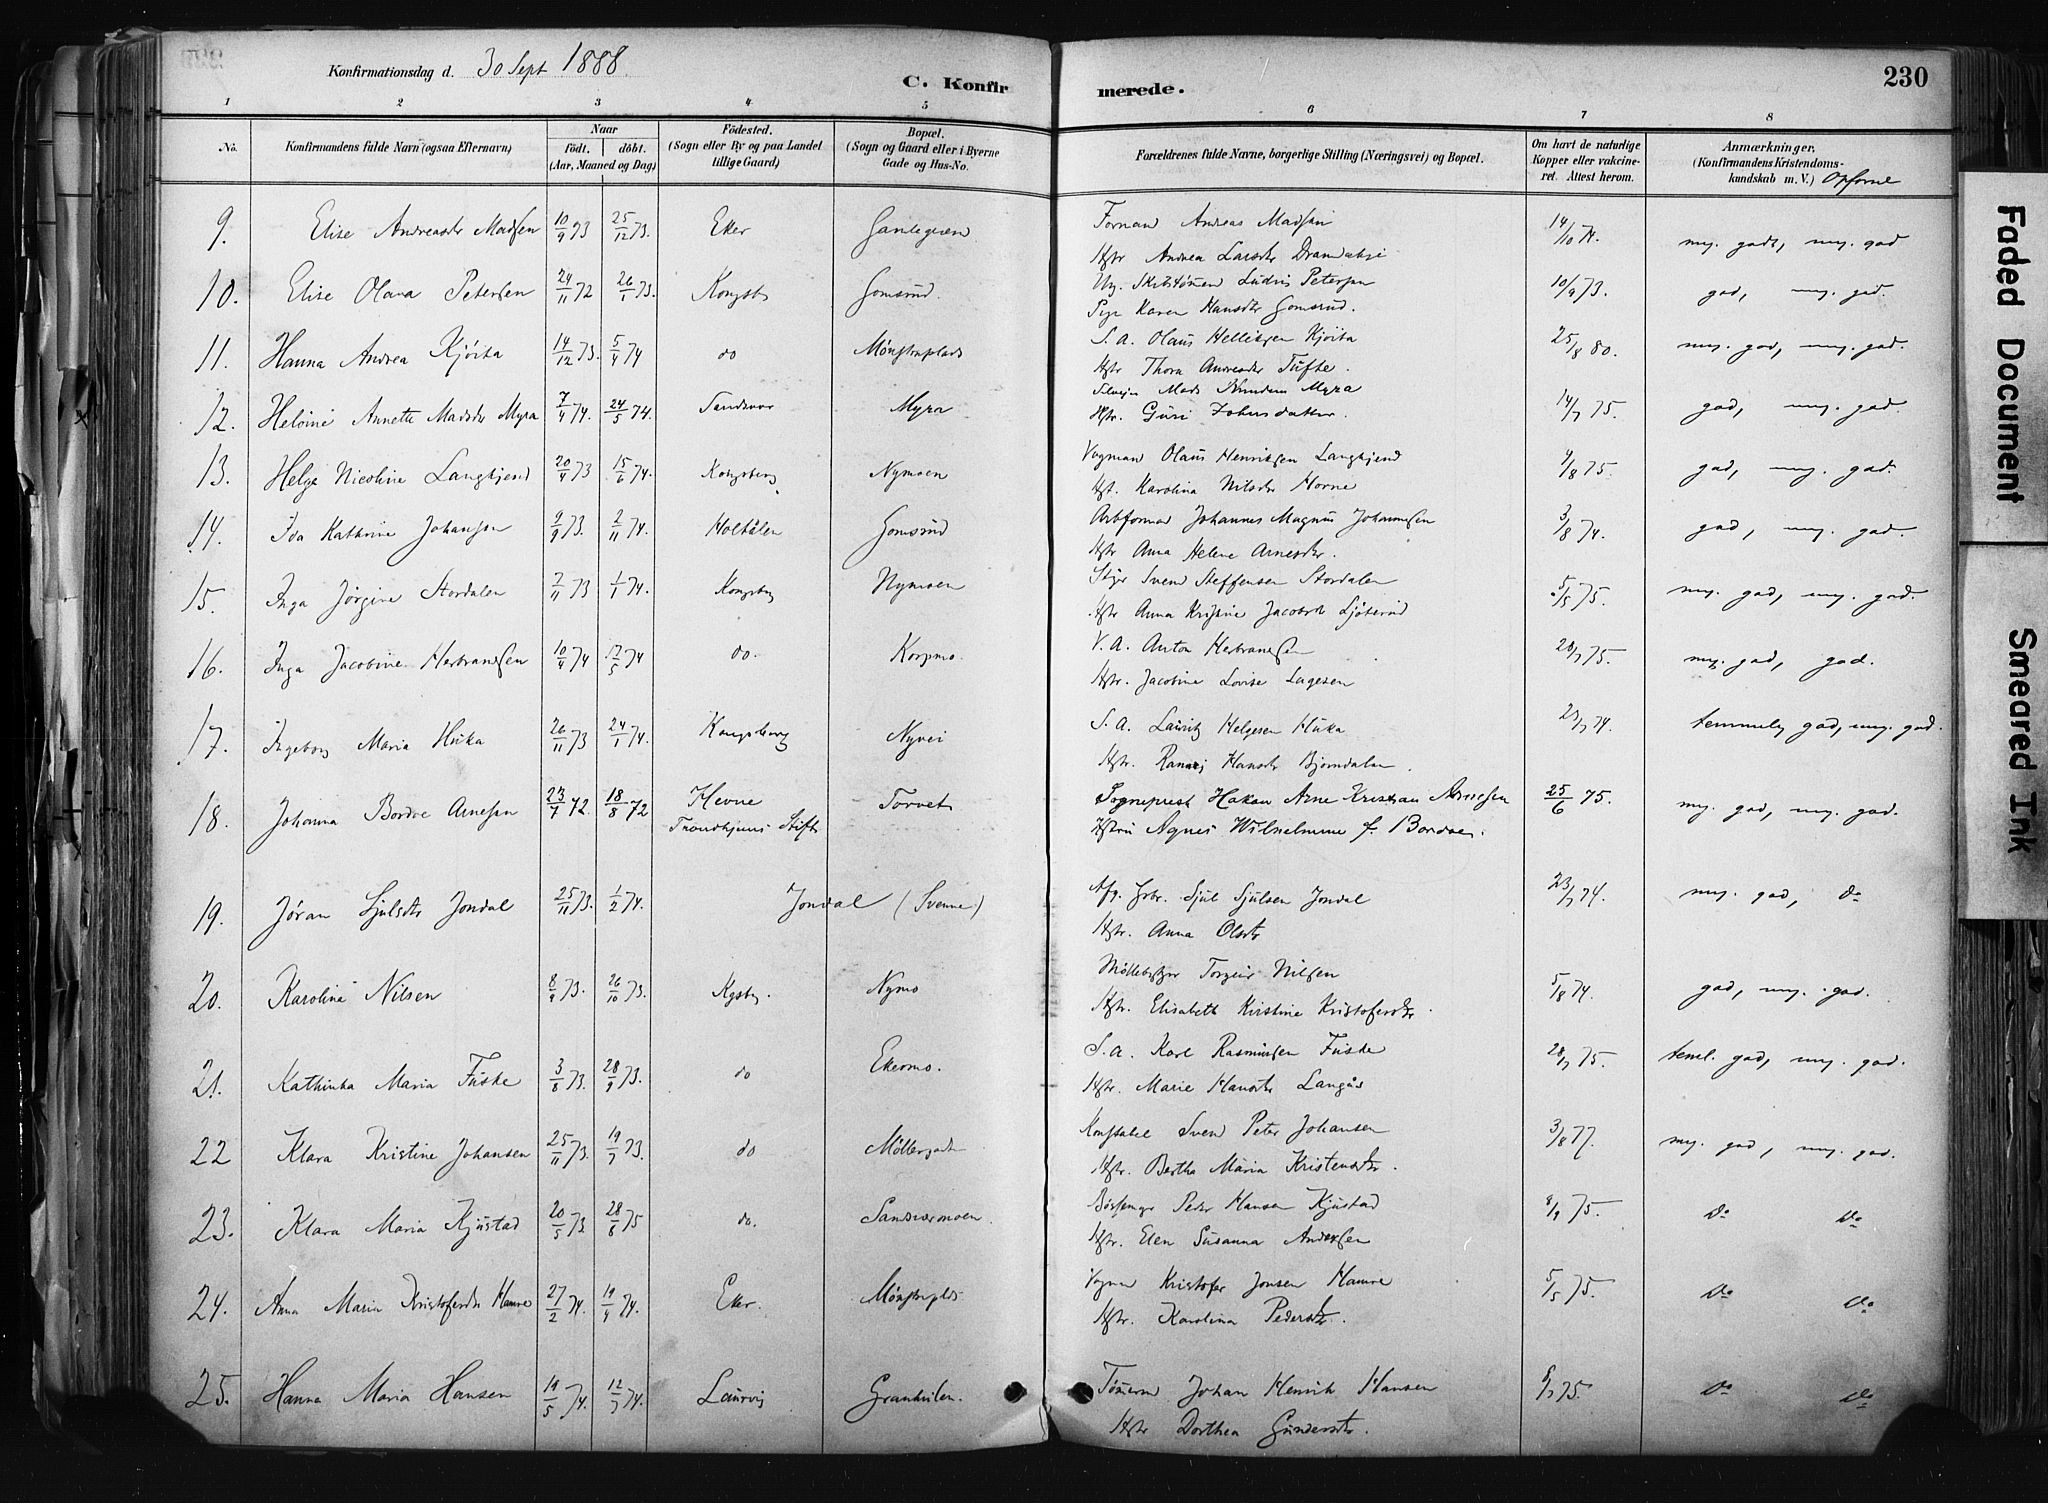 Konfirmationsdag d. 30 Sept 1888
C. Konfirmerede.
230
1 2 3 4 5 6 7 8
No.
Konfirmandens fulde Navn (ogsaa Efternavn)
Naar
födt. döbt.
(Aar, Maaned og Dag)
Födested.
(Sogn eller By og paa Landet
tillige Gaard)
Bopæl.
(Sogn og Gaard eller i Byerne
Gade og Hus-No.
Forældrenes fulde Navne, borgerlige Stilling (Næringsvei) og Bopæl.
Om havt de naturlige
Kopper eller vakcine-
ret. Attest herom.
Anmærkninger,
(Konfirmandens Kristendoms-
kundskab m. V.)
9. Elise Andreasdr Madsen 10/9 73 25/12 73. Eker Gamlegrænd Forman Andreas Madsen 14/10 74. mg. godt, mg. god
Hstr Andrea Larsdr
10. Elise Olava Petersen 24/11 72 26/1 73. Kongsb Gomsrud. Ludvig Petersen 10/9 73. god, mg. god.
Pige Karen Hansdr Gomsrud.
11. Hanna Andrea Kjörta 14/12 73. 5/4 74 do Möngstuplads S. A. Olaus Helliksen Kjörta 25/8 80. mg. god, mg. god.
Hstr Thora Andreasdr Tufte.
12. Heloine Annette Madsdr Myra 7/4 74. 24/5 74. Sandsvær Myra Mads Myra 14/7 75. god, mg. god.
Hstr. Guri Johnsdatter.
13. Helga Nicoline Langkjend 20/4 73 15/6 74. Kongsberg Nymoen Vogman Olaus Henriksen Langkjend 9/8 75. god, mg. god.
Hst. Karolina Nilsdr Horne
14. Ida Kathrine Johansen 9/9 73. 2/11 74. Holtålen Gomsrud Arbformand Johannes Magnus Johannesen 3/8 74. god, mg. god.
Hstr Anna Helene Arnesdr.
15. Inga Jörgine Stordalen 7/11 73 1/1 74. Kongsberg Nymoen Stiger Svend Steffensen Stordalen 5/5 75. mg. god, mg. god.
Hstr Anna Kristine Jacobsdr
16. Inga Jacobine Herbrandsen 10/4 74 17/5 74 do. Korpmo. V. A. Anton Herbrandsen 28/7 75. mg. god, god.
Hstr. Jacobine Lovise Lagesen
17. Ingeborg Maria Huka 26/11 73 24/1 74. Kongsberg Nyvei S. A. Lauritz Helgesen Huka 23/7 74. temmelig god, mg. god.
Hstr. Hansdr Bjorndalen.
18. Johanna Bordoe Arnesen 23/7 72. 18/8 72 Hevne Torvet Sogneprest Hakon Arne Kristian Arnesen 25/6 75. mg. god, mg. god.
Trondhjems Stift Hstru Agnes Wilhelmine f. Bordoe.
19. Jöran Sjulsdr Jondal 25/11 73. 1/2 74. Jondal (Svenne) Afg. Grbr. Sjul Sjulsen Jondal 23/7 74. mg. god, do
Hstr. Anna Olsdr
20. Karoline Nilsen 8/9 73. 26/10 73. Kgsbg. Nymo Möllebestyrer Torgeir Nilsen 5/8 74. god, mg. god.
Hstr. Elisabeth Kirstine Kristofersdr.
21. Kathinka Maria Fiiske 3/8 73. 28/9 73. do Ekermo. S. A. Karl Rasmussen Fiiske 28/7 75. teml. god, mg. god.
Hstr. Marie Hansdr Langås
22 Klara Kristine Johansen 25/11 73. 19/7 73. do Möllergaden Konstabel Svend Peter Johansen 3/8 77. mg. god, mg. god.
Hstr. Bertha Maria Kristensdr.
23. Klara Maria Kjustad 20/5 73 28/8 75 do. Sandsværmoen. Börsemgr Peder Hansen Kjustad 8/9 75. do do
Hstr. Elen Susanna Andersen
24. Anna Maria Kristofersdr Hamre 27/2 74. 19/4 74. Eker. Möngstuplds Vogman Kristofer Jonsen Hamre 5/5 75. do do
Hstr. Karolina Pedersdr.
25. Hanna Maria Hansen 19/5 74. 12/7 74. Laurvig Granhulen. Tömerm Johan Henrik Hansen 6/7 75. do do
Hstr Dorthea Gundersdr.
Faded Document
Smeared Ink